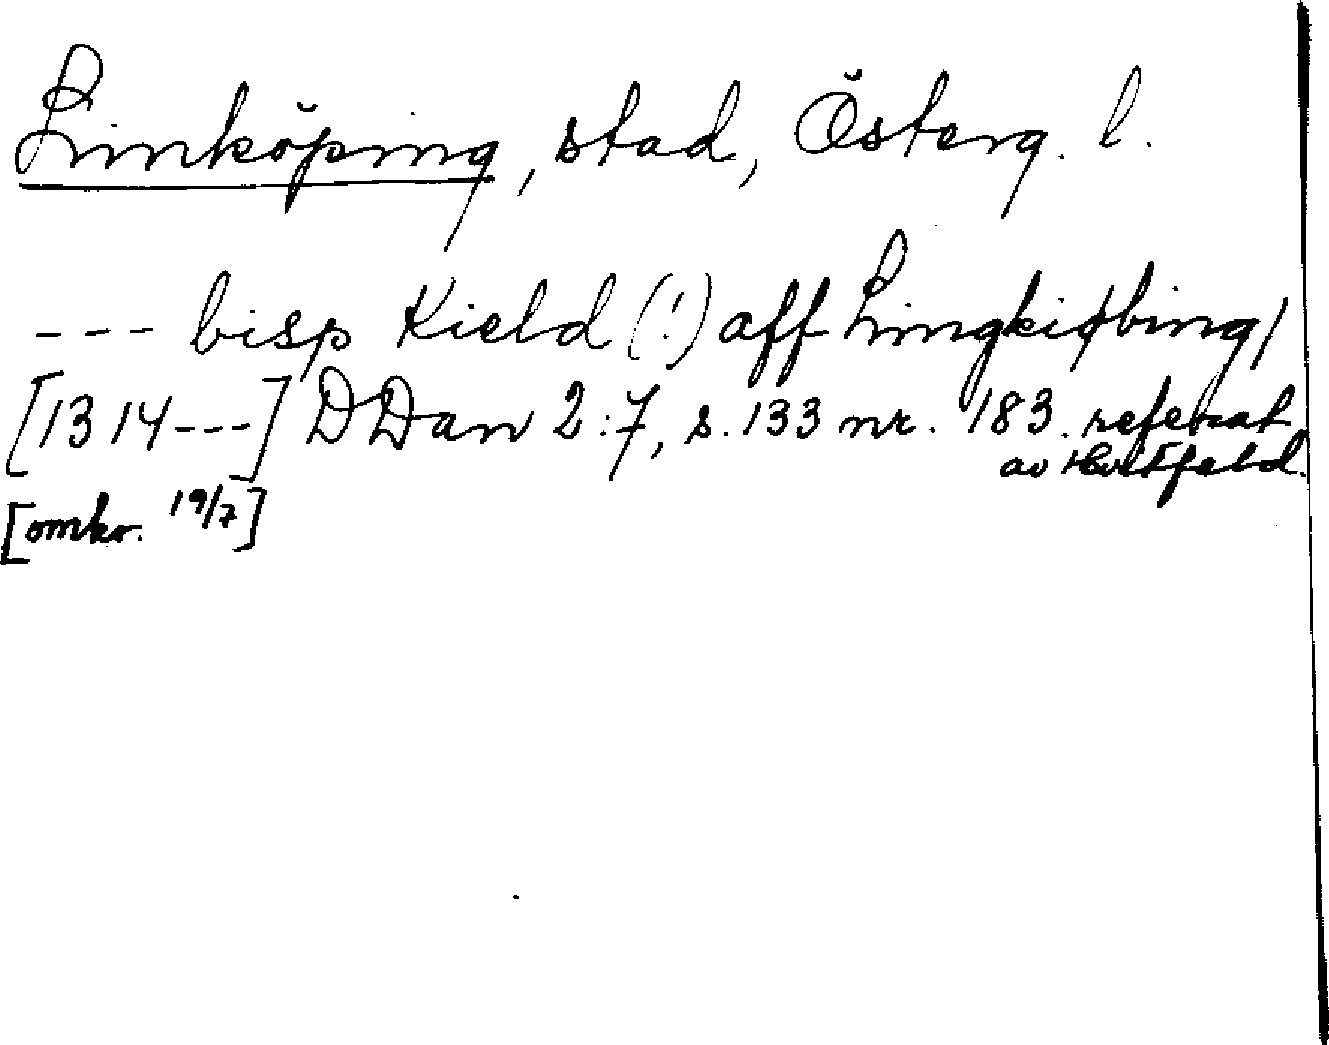 Linköping, stad, Österg. l.
--- bisp Kield (!) aff Lingkiøbing/
[1314---] DDan 2:7, s. 133 nr. 183. referat
av Hvitfeld.
[omkr. 19/7]